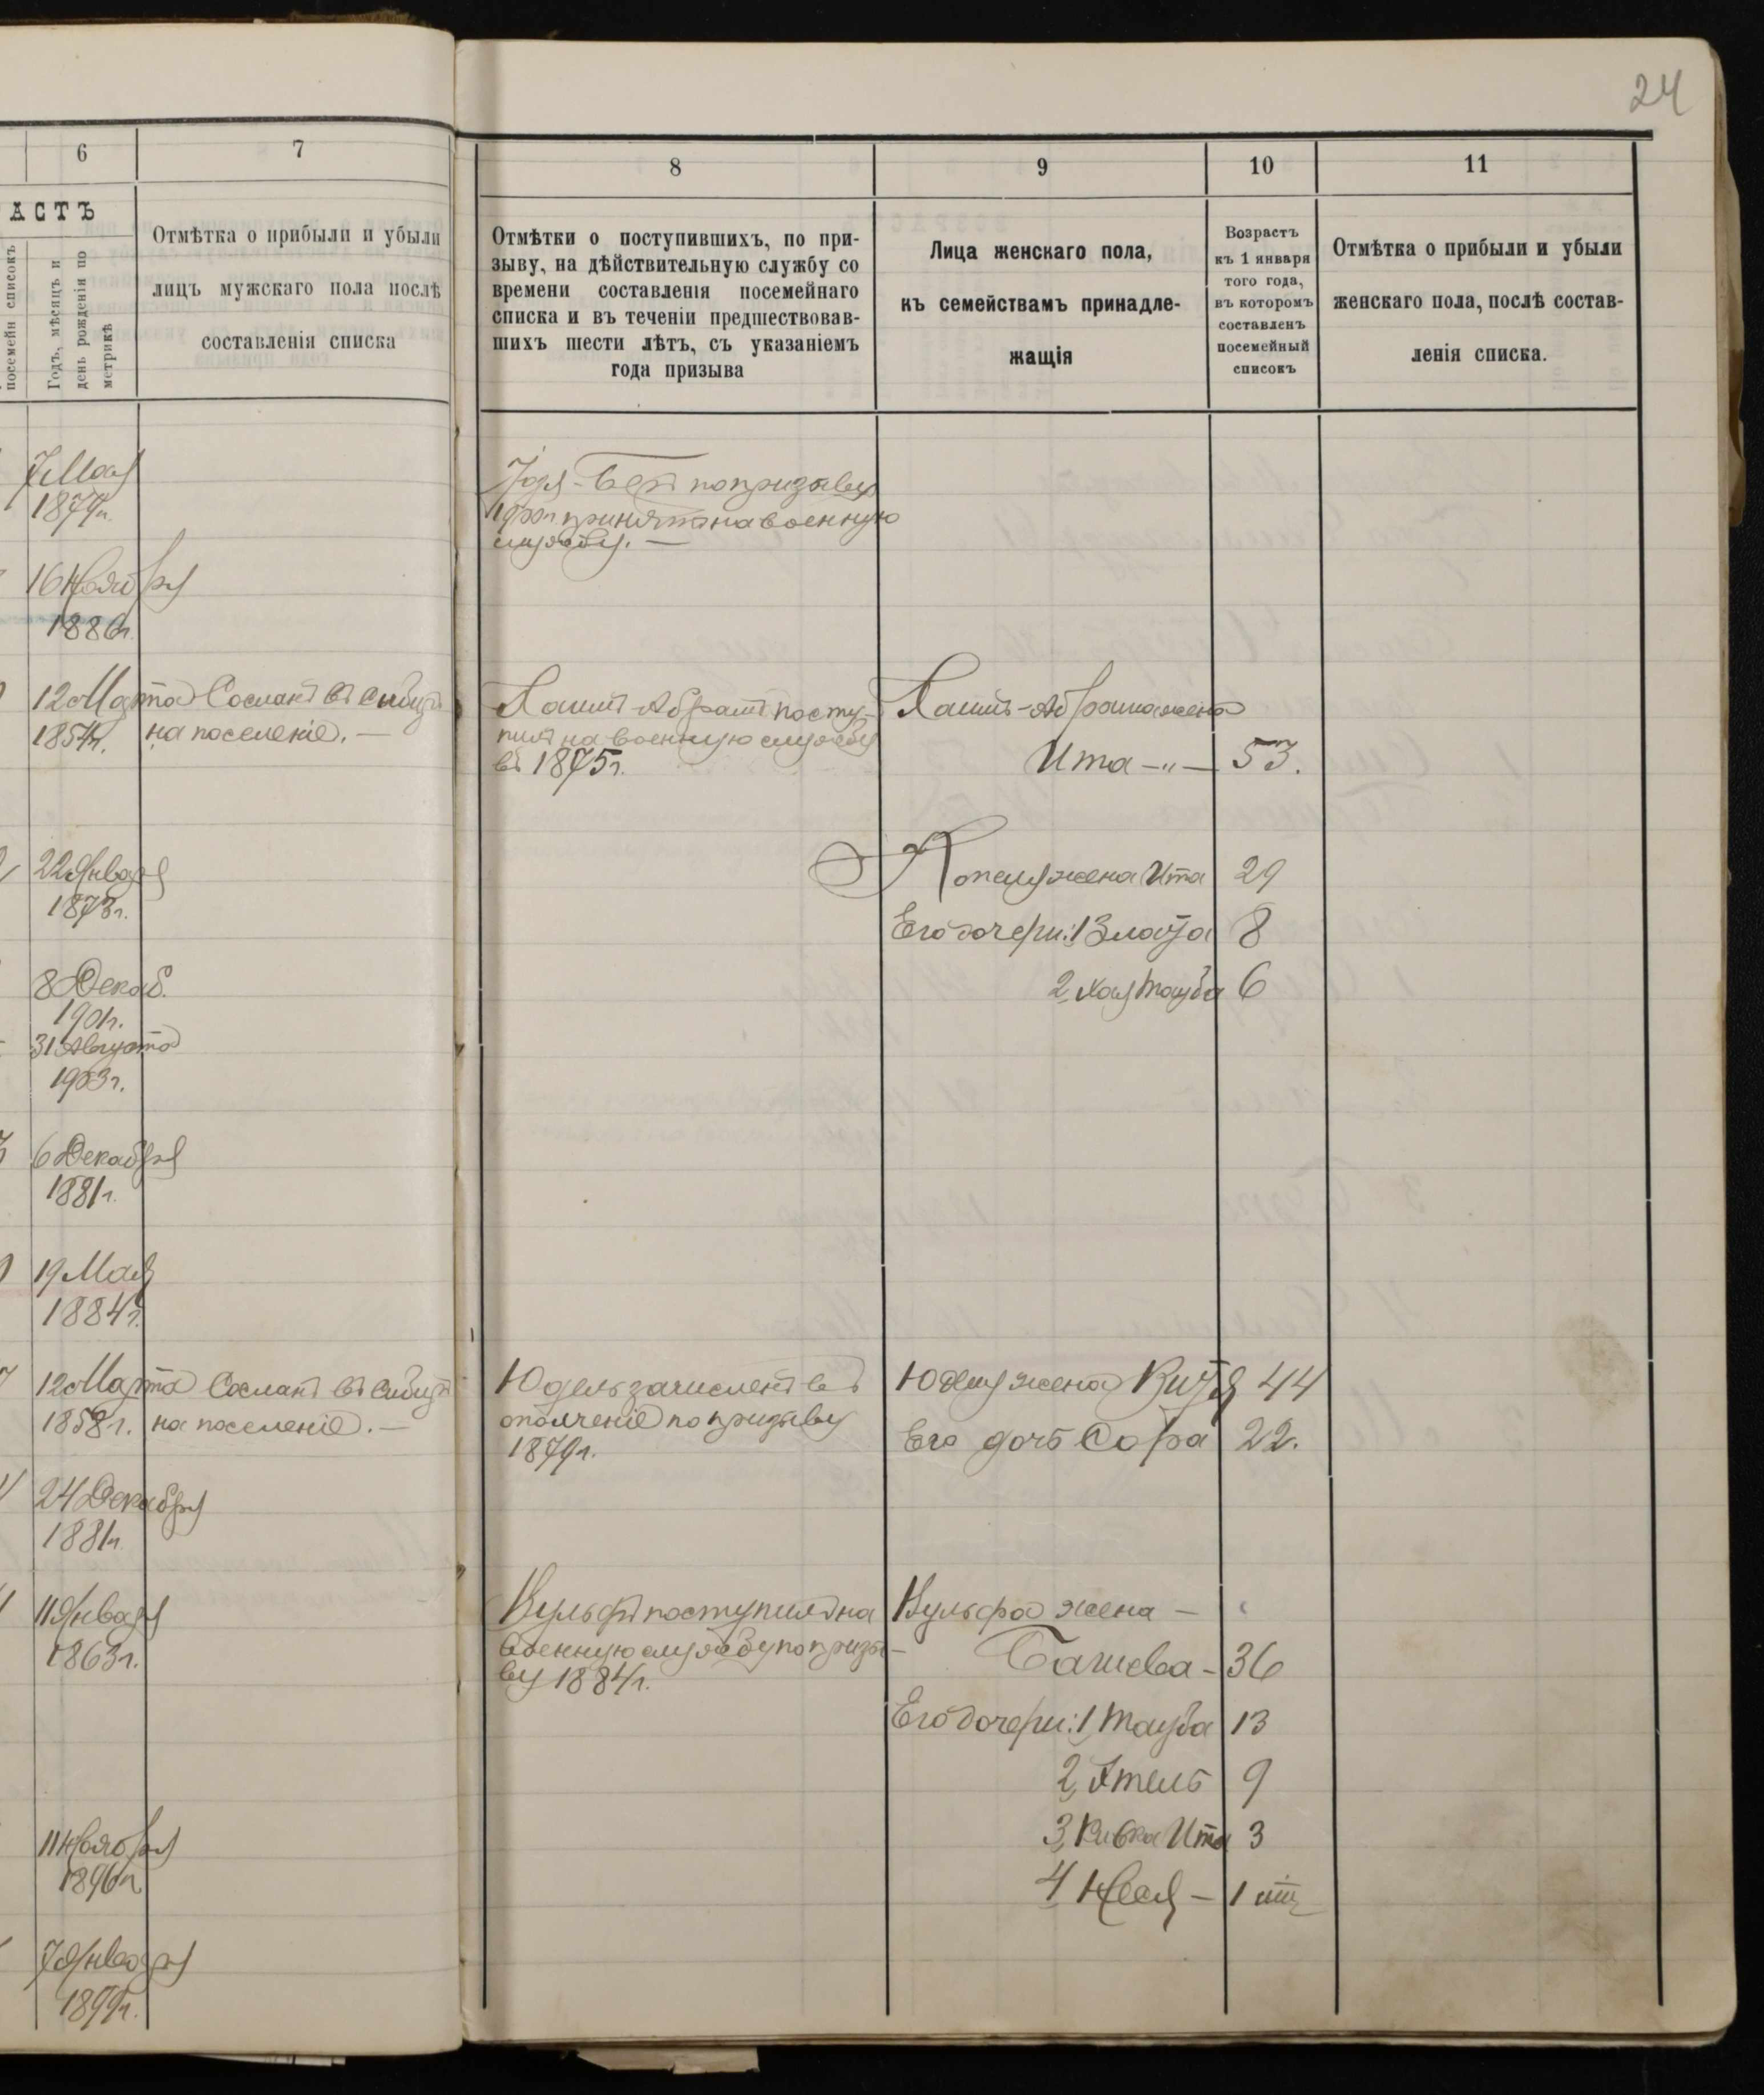 24
6
7
АСТЪ
посемейн списокъ
Годъ, мѣсяцъ и
день рожденія по
метрикѣ
Отмѣтка о прибыли и убыли
лицъ мужскаго пола послѣ
составленія списка
7 Мая
1879 г.
16 Ноября
1886 г.
12 Марта Сосланъ въ Сибирь
1854 г. на поселеніе. —
22 Января
1873 г.
8 Декаб.
1901 г.
31 Августа
1903 г.
6 Декабря
1881 г.
19 Мая
1884 г.
12 Марта Сосланъ въ Сибирь
1858 г. на поселеніе. —
24 Декабря
1881 г.
11 Января
1863 г.
11 Ноября
1896 г.
7 Января
1899 г.
8
9
10
11
Отмѣтки о поступившихъ, по при-
зыву, на дѣйствительную службу со
времени составленія посемейнаго
списка и въ теченіи предшествовав-
шихъ шести лѣтъ, съ указаніемъ
года призыва
Лица женскаго пола,
къ семействамъ принадле-
жащія
Возрастъ
къ 1 января
того года,
въ которомъ
составленъ
посемейный
списокъ
Отмѣтка о прибыли и убыли
женскаго пола, послѣ состав-
ленія списка.
по призыву
1900 г. принятъ на военную
службу. —
Хаимъ-Абрамъ посту-
пилъ на военную службу
въ 1875 г.
Хаимъ-Абрама жена
Ита — " — 53.
жена Ита 29
Его дочери: 1 Злата 8
2, Хая Тауба 6
Юдель зачисленъ въ
ополченіе по призыву
1879 г.
Юделя жена 44
Его дочь Сора 22.
Вульфъ поступилъ на
военную службу по призы-
ву 1884 г.
Вульфа жена —
Башева - 36
Его дочери: 1 Тауба 13
2, Этель 9
3, Ривка Ита 3
4 Хвая — 1